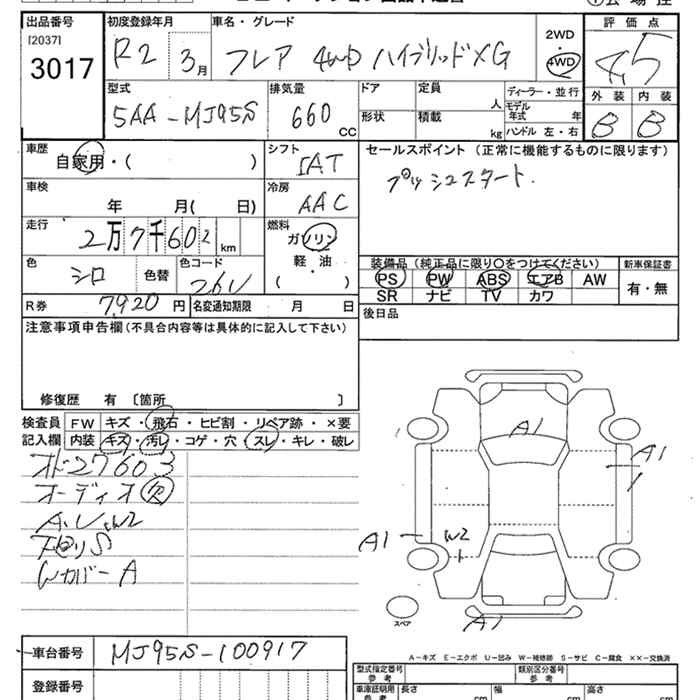 出品番号 初度登録年月 車名・グレード 評価点
[2037] 2WD
3017 R2 3月 フレア 4WD ハイブリッドXG ・ 4WD 4.5
型式 排気量 ドア 定員 人 ディーラー・並行 外装 内装
5AA-MJ95S 660 CC 形状 積載 kg モデル年式 年 B B
ハンドル 左・右
車歴 シフト セールスポイント (正常に機能するものに限ります)
自家用・( ) IAT プッシュスタート.
車検 冷房
年 月( 日) AAC
走行 燃料
2万7千602 km ガソリン
色 色コード 軽・油 装備品 (純正品に限り○をつけてください) 新車保証書
シロ 色替 26V ( ) PS PW ABS エアB AW 有・無
SR ナビ TV カワ
R券 7,920 円 名変通知期限 月 日 後日品
注意事項申告欄 (不具合内容等は具体的に記入して下さい)
修復歴 有 〔箇所 〕
検査員 FW キズ・飛石・ヒビ割・リペア跡・×要
記入欄 内装 キズ・汚レ・コゲ・穴・スレ・キレ・破レ
オド27603
オーディオ欠
A1
A1
A1 W2
A1
スペア
Wカバー A
車台番号 MJ95S-100917
A-キズ E-エクボ U-凹み W-補修跡 S-サビ C-腐食 ××-交換済
登録番号 型式指定番号 参考 類別区分番号 参考
車庫証明用 参考 長さ cm 幅 cm 高さ cm